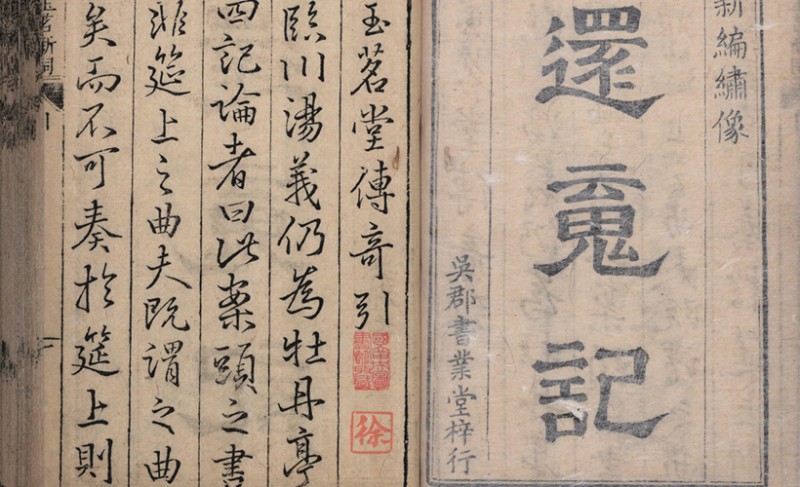 新編繡像
還䰟記
吳郡書業堂梓行
玉茗堂傳奇引
徐
臨川湯義仍為牡丹亭
四記論者曰此案頭之書
非筵上之曲夫既謂之曲
矣而不可奏於筵上則